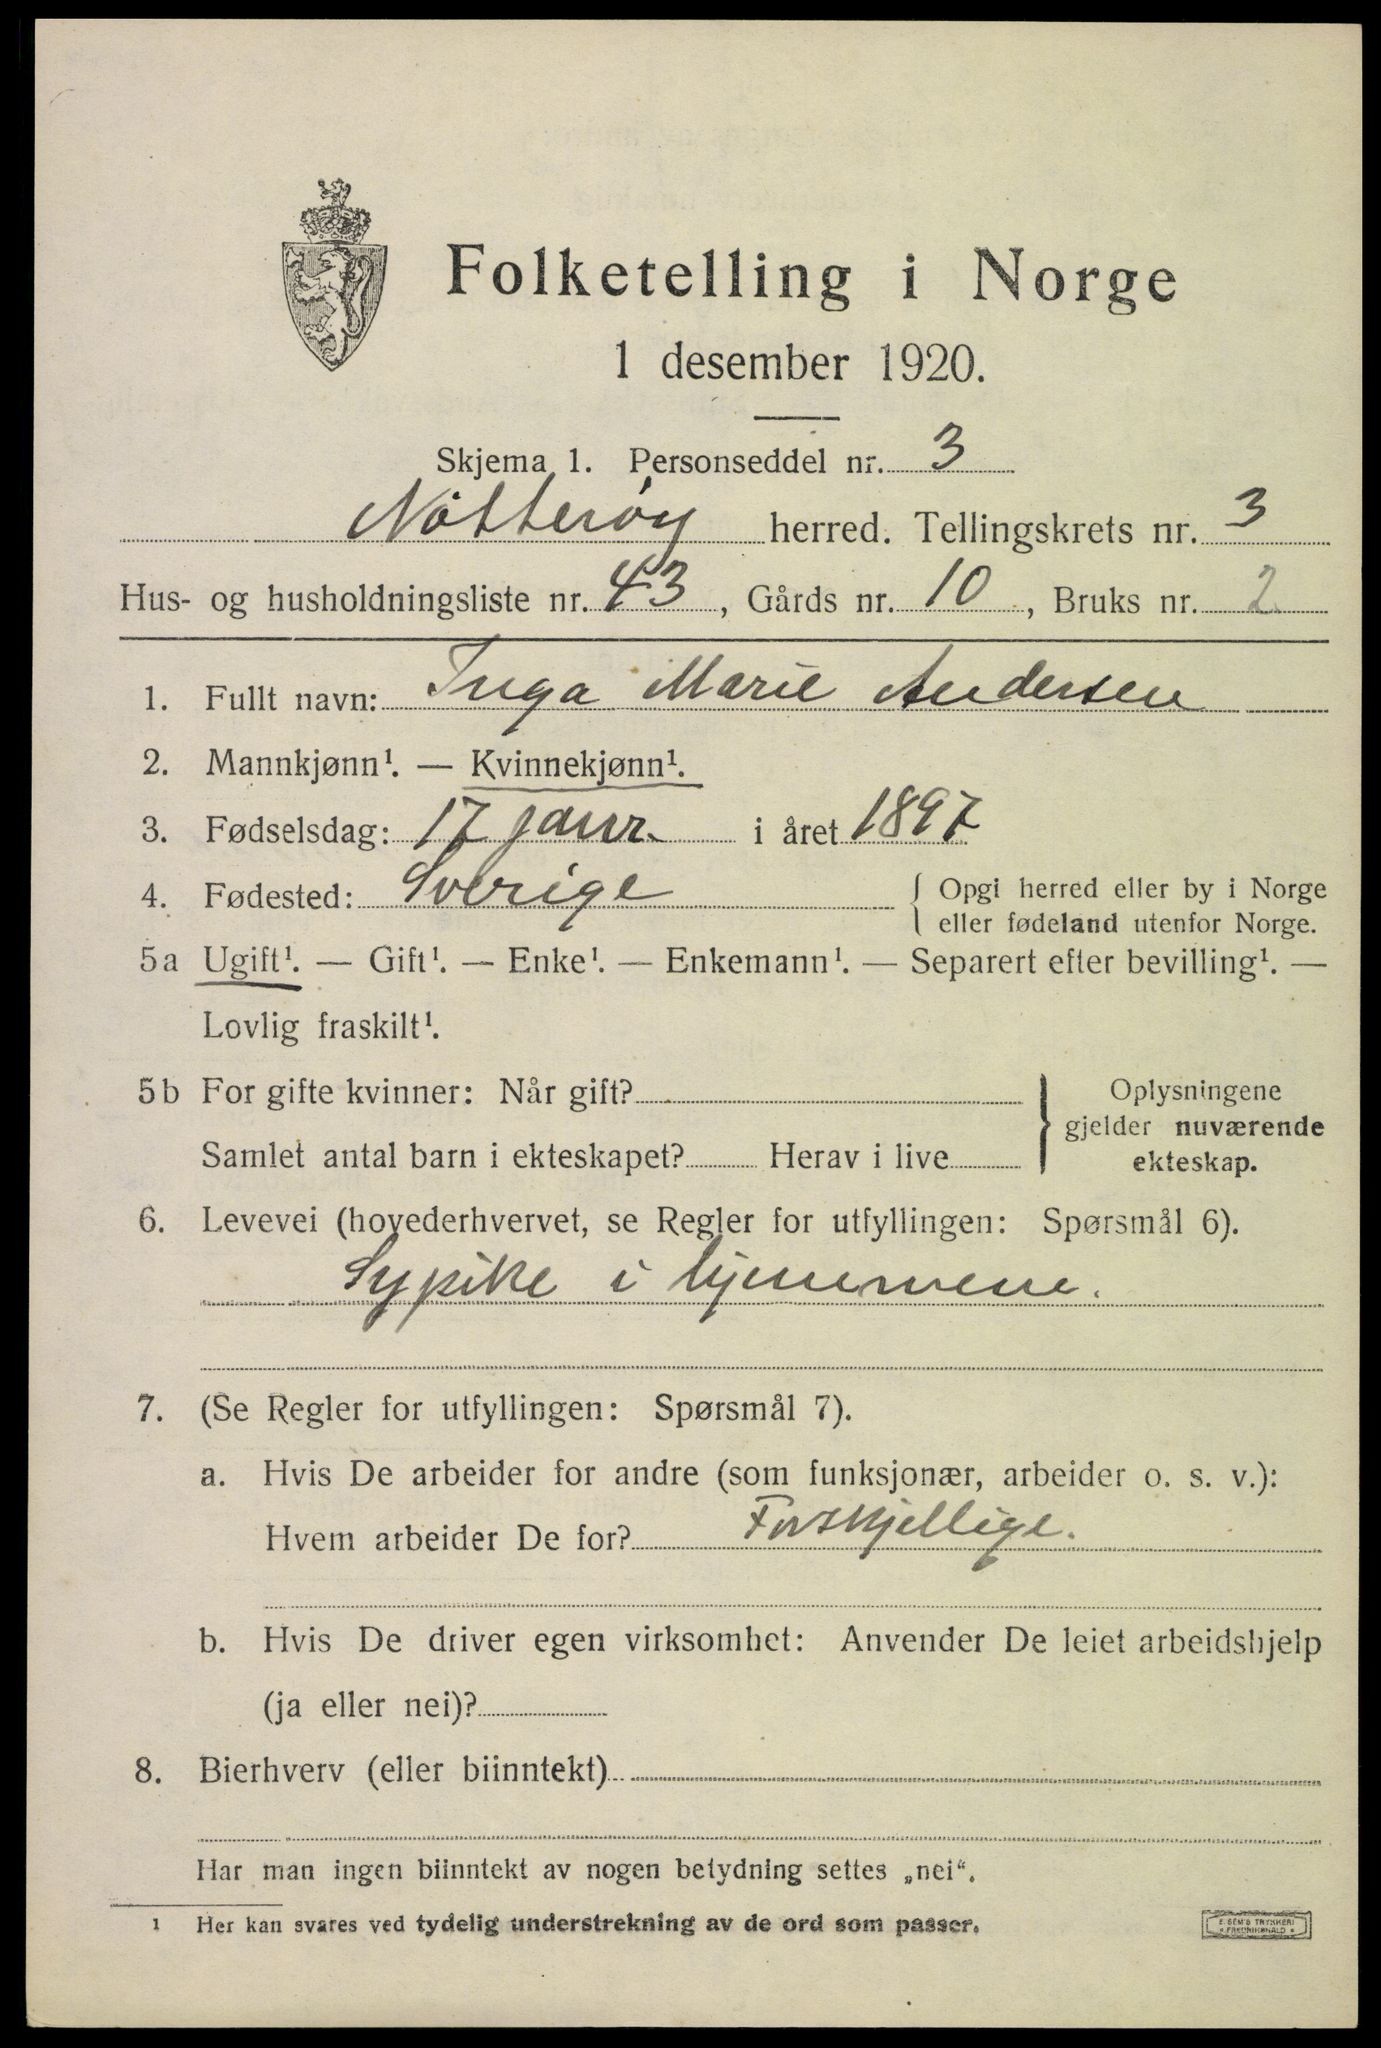 Folketelling i Norge
1 desember 1920.
Skjema 1. Personseddel nr. 3
Nøtterøy herred. Tellingskrets nr. 3
Hus- og husholdningsliste nr. 43, Gårds nr. 10, Bruks nr. 2
1. Fullt navn: Inga Marie Andersen
2. Mannkjønn¹. — Kvinnekjønn¹.
3. Fødselsdag: 17 janr. i året 1897
4. Fødested: Sverige { Opgi herred eller by i Norge
eller fødeland utenfor Norge.
5a Ugift¹. — Gift¹. — Enke¹. — Enkemann¹. — Separert efter bevilling¹. —
Lovlig fraskilt¹.
5b For gifte kvinner: Når gift?
Samlet antal barn i ekteskapet? Herav i live
} Oplysningene
gjelder nuværende
ekteskap.
6. Levevei (hovederhvervet, se Regler for utfyllingen: Spørsmål 6).
Sypike i hjemmene.
7. (Se Regler for utfyllingen: Spørsmål 7).
a. Hvis De arbeider for andre (som funksjonær, arbeider o. s. v.):
Hvem arbeider De for? Forskjellige.
b. Hvis De driver egen virksomhet: Anvender De leiet arbeidshjelp
(ja eller nei)?
8. Bierhverv (eller biinntekt)
Har man ingen biinntekt av nogen betydning settes „nei“.
1 Her kan svares ved tydelig understrekning av de ord som passer.
E. SEM'S TRYKKERI
FREDRIKSHALD